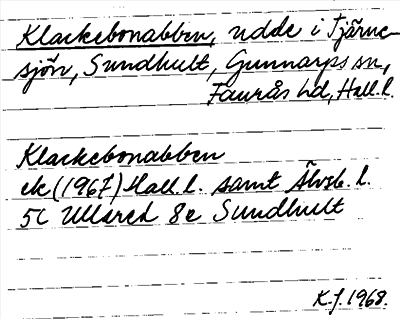 Klackebonabben, udde i Tjärne-
sjön, Sundhult, Gunnarps sn,
Faurås hd, Hall.l.
Klackebonabben
ek (1967) Hall.l. samt Älvsb. l.
5C Ullared 8e Sundhult
K.J. 1968.